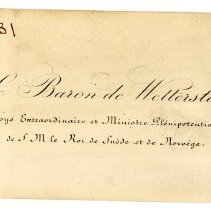 31
Baron de Wetterst
oyé Extraordinaire et Ministre Plénipotentia
de S. M. le Roi de Suède et de Norvège.